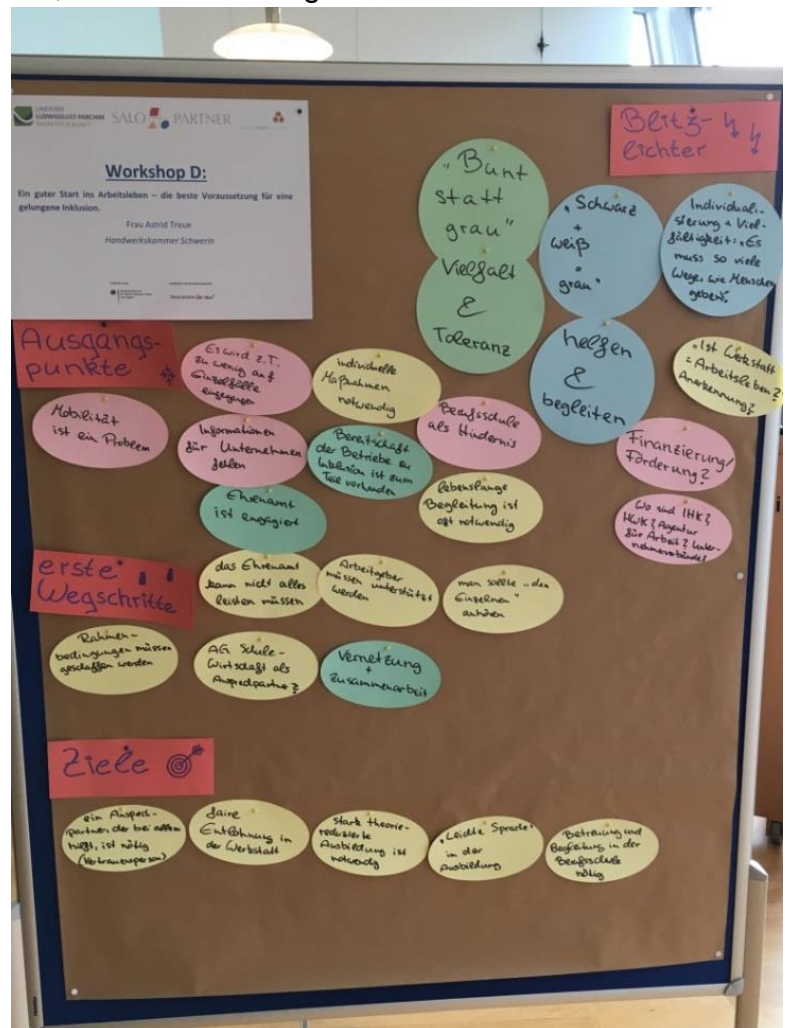 LANDKREIS
LUDWIGSLUST-PARCHIM
SALO PARTNER
Workshop D:
Ein guter Start ins Arbeitsleben – die beste Voraussetzung für eine
gelungene Inklusion.
Frau Astrid Treue
Handwerkskammer Schwerin
Blitz-
lichter
"Bunt
statt
grau"
Vielfalt
&
Toleranz
"Schwarz
+
weiß
=
grau"
helfen
&
begleiten
Individuali-
sierung + Viel-
fältigkeit: "Es
muss so viele
Wege, wie Menschen
geben"
"Ist Werkstatt
= Arbeitsleben?
Anerkennung?
Finanzierung/
Förderung?
Wo sind IHK?
HWK? Agentur
für Arbeit? Unter-
nehmerverbände?
Ausgangs-
punkte
Es wird z.T.
zu wenig auf
Einzelfälle
eingegangen
individuelle
Maßnahmen
notwendig
Mobilität
ist ein Problem
Informationen
für Unternehmen
fehlen
Bereitschaft
der Betriebe zu
Inklusion ist zum
Teil vorhanden
Berufsschule
als Hindernis
Ehrenamt
ist engagiert
lebenslange
Begleitung ist
oft notwendig
erste
Wegschritte
das Ehrenamt
kann nicht alles
leisten müssen
Arbeitgeber
müssen unterstützt
werden
man sollte "den
Einzelnen"
anhören
Rahmen-
bedingungen müssen
geschaffen werden
AG Schule-
Wirtschaft als
Ansprechpartner?
Vernetzung
+
Zusammenarbeit
Ziele
ein Ansprech-
partner, der bei allem
hilft, ist nötig
(Vertrauensperson)
faire
Entlohnung in
der Werkstatt
stark theorie-
reduzierte
Ausbildung ist
notwendig
"Leichte Sprache"
in der
Ausbildung
Betreuung und
Begleitung in der
Berufsschule
nötig